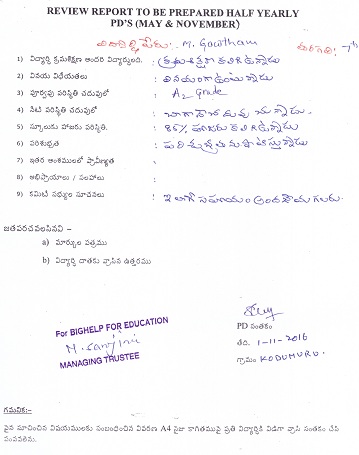 REVIEW REPORT TO BE PREPARED HALF YEARLY
PD'S (MAY & NOVEMBER)
విద్యార్థి పేరు:- M. Gowtham తరగతి: 7th
1) విద్యార్థి క్రమశిక్షణ అందరి విద్యార్థులలో. : క్రమశిక్షణ కలిగి ఉన్నాడు
2) వినయ విధేయతలు : వినయంగా ఉన్నాడు
3) పూర్వపు పరిస్థితి చదువులో : A2 Grade
4) నేటి పరిస్థితి చదువులో : బాగా చదువుచున్నాడు.
5) స్కూలుకు హాజరు పరిస్థితి. : 85% హాజరు కలిగి ఉన్నాడు
6) పరిశుభ్రత : పరిశుభ్రత పాటిస్తున్నాడు
7) ఇతర అంశములలో ప్రావీణ్యత :
8) అభిప్రాయాలు / సలహాలు :
9) కమిటీ సభ్యుల సూచనలు : ఇలాగే సహాయం అందచేయగలరు.
జతపరచవలసినవి –
a) మార్కుల పత్రము
b) విద్యార్థి దాతకు వ్రాసిన ఉత్తరము
For BIGHELP FOR EDUCATION
MANAGING TRUSTEE
PD సంతకం
తేది. 1-11-2016
గ్రామం KODUMURU.
గమనిక:-
పైన సూచించిన విషయములకు సంబంధించిన వివరణ A4 సైజు కాగితముపై ప్రతి విద్యార్థికి విడిగా వ్రాసి సంతకం చేసి
పంపవలెను.